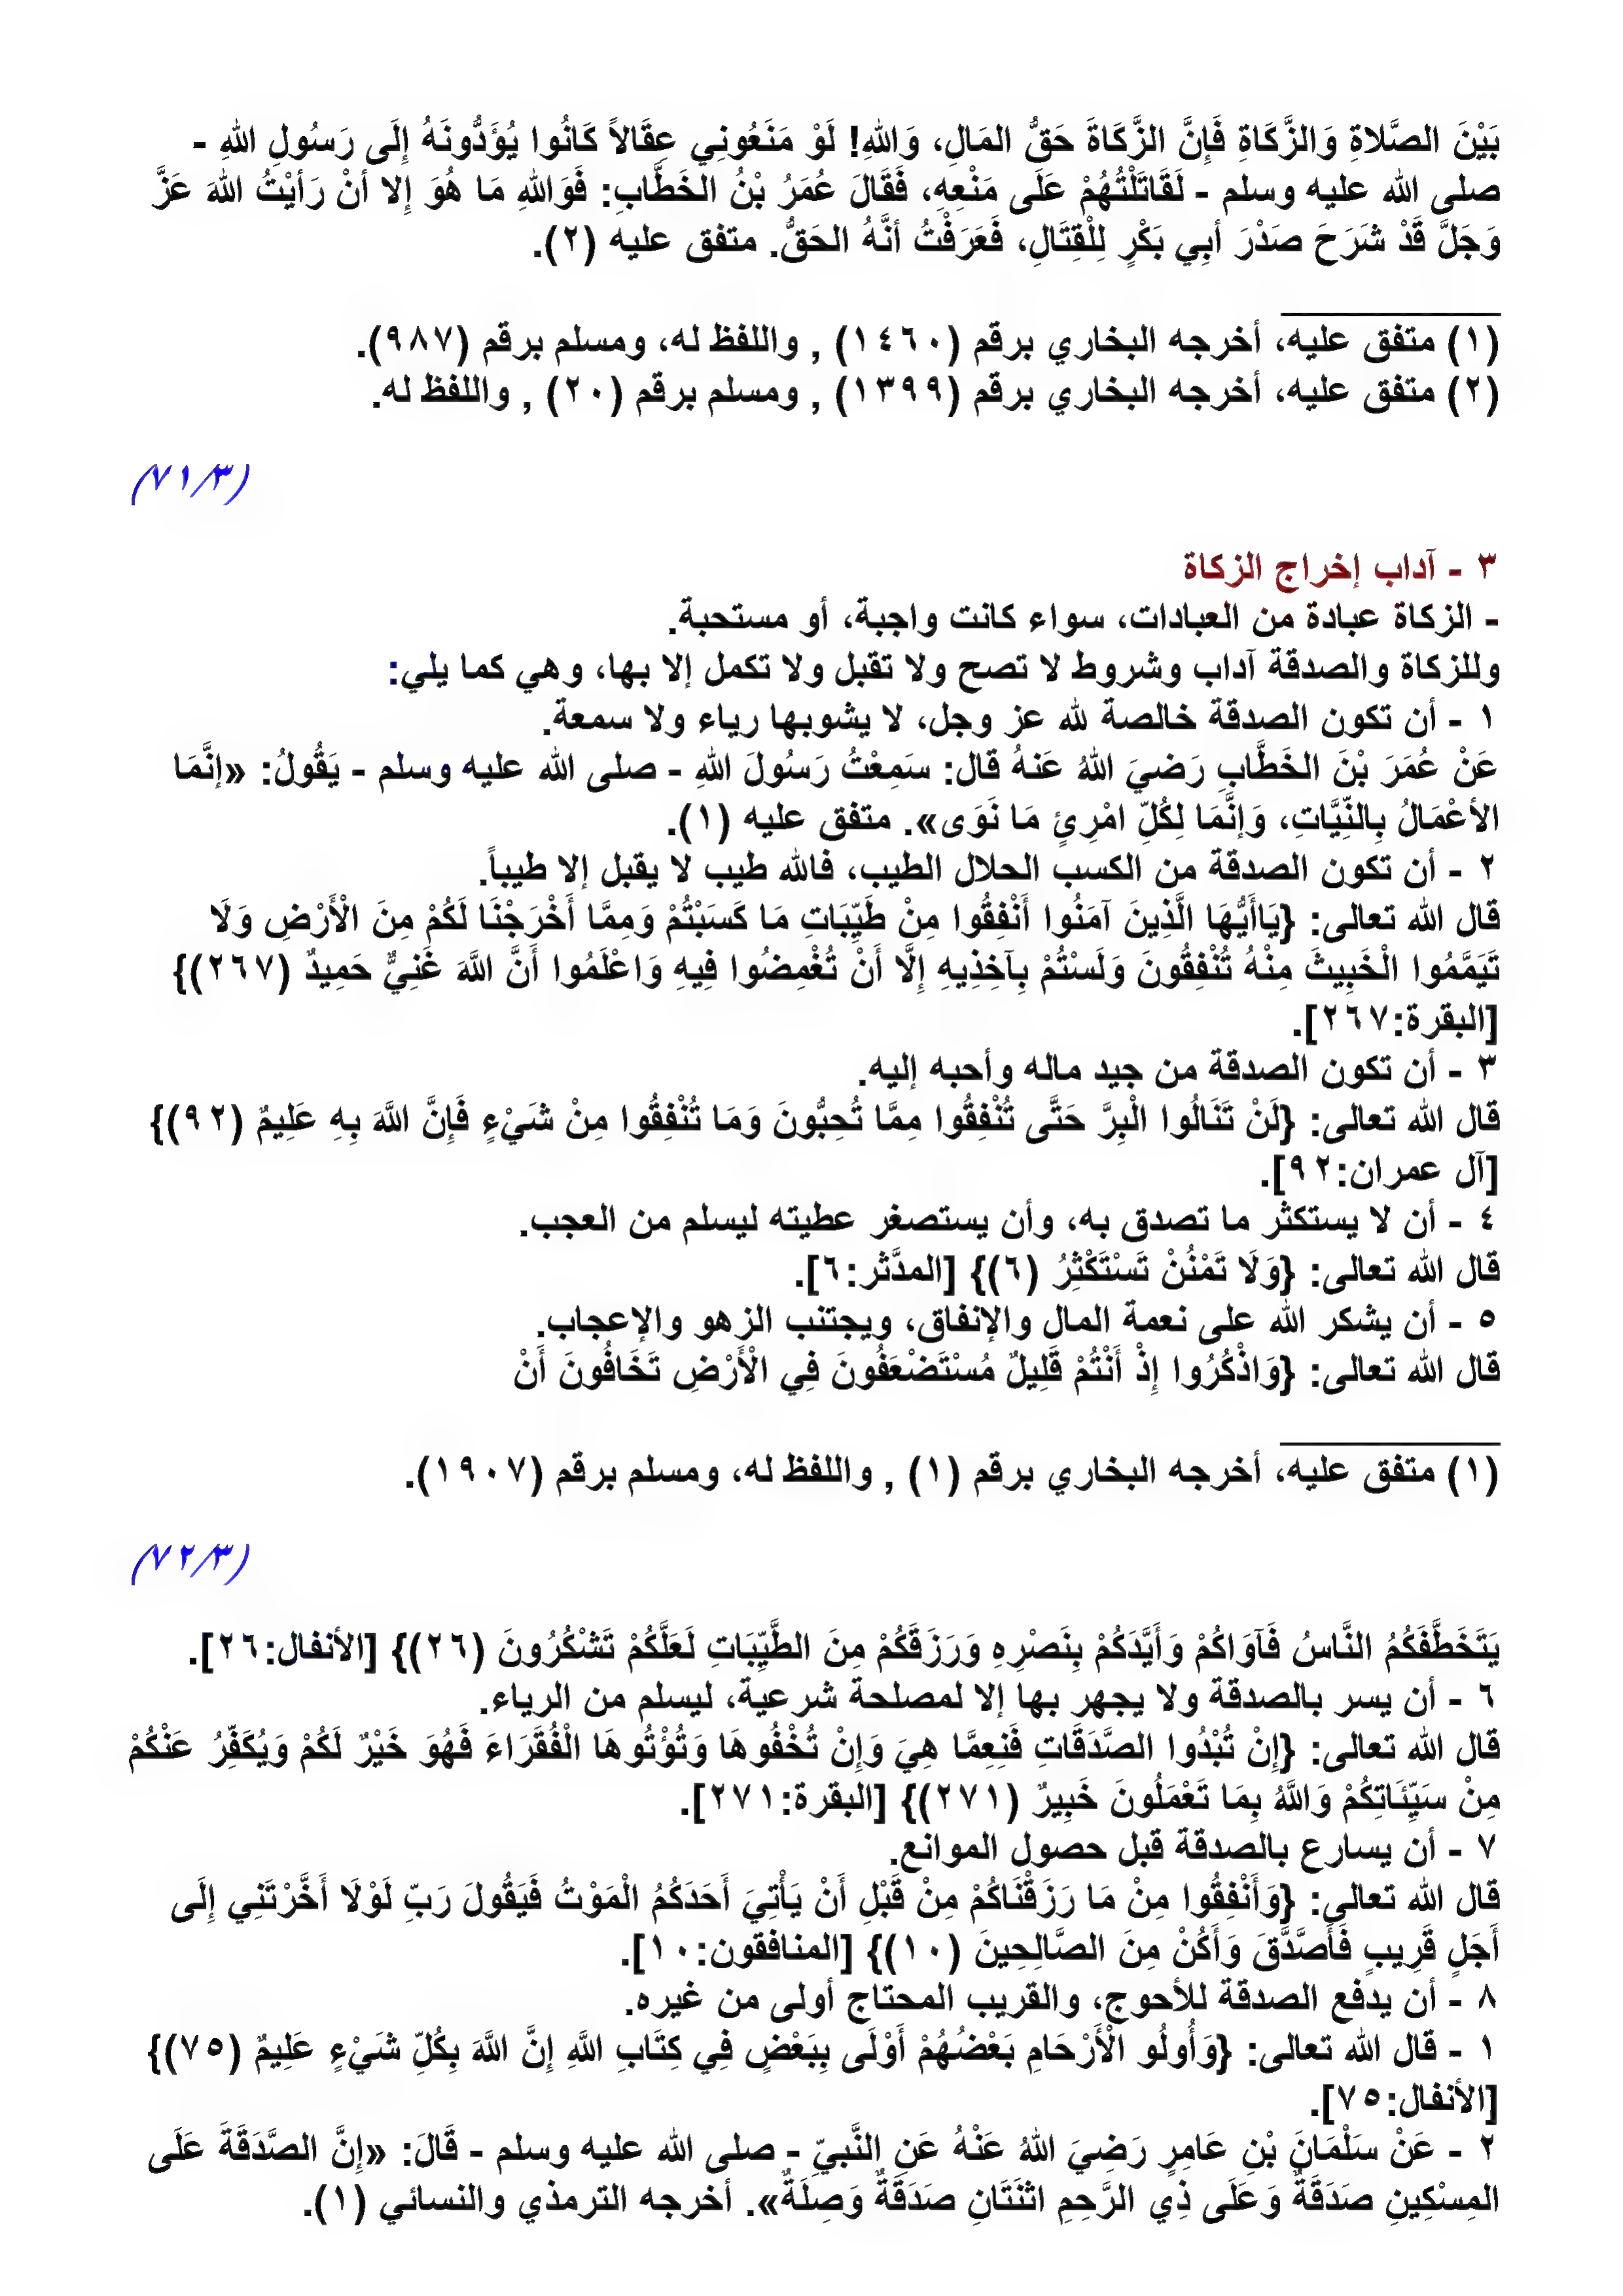 بَيْنَ الصَّلاةِ وَالزَّكَاةِ فَإِنَّ الزَّكَاةَ حَقُّ المَالِ، وَاللهِ! لَوْ مَنَعُونِي عِقَالاً كَانُوا يُؤَدُّونَهُ إِلَى رَسُولِ اللهِ -
صلى الله عليه وسلم - لَقَاتَلْتُهُمْ عَلَى مَنْعِهِ، فَقَالَ عُمَرُ بْنُ الخَطَّابِ: فَوَاللهِ مَا هُوَ إِلا أنْ رَأيْتُ اللهَ عَزَّ
وَجَلَّ قَدْ شَرَحَ صَدْرَ أبِي بَكْرٍ لِلْقِتَالِ، فَعَرَفْتُ أنَّهُ الحَقُّ. متفق عليه (٢).
(١) متفق عليه، أخرجه البخاري برقم (١٤٦٠) , واللفظ له، ومسلم برقم (٩٨٧).
(٢) متفق عليه، أخرجه البخاري برقم (١٣٩٩) , ومسلم برقم (٢٠) , واللفظ له.
(٧١/٣)
٣ - آداب إخراج الزكاة
- الزكاة عبادة من العبادات، سواء كانت واجبة، أو مستحبة.
وللزكاة والصدقة آداب وشروط لا تصح ولا تقبل ولا تكمل إلا بها، وهي كما يلي:
١ - أن تكون الصدقة خالصة لله عز وجل، لا يشوبها رياء ولا سمعة.
عَنْ عُمَرَ بْنَ الخَطَّابِ رَضيَ اللهُ عَنهُ قال: سَمِعْتُ رَسُولَ اللهِ - صلى الله عليه وسلم - يَقُولُ: «إنَّمَا
الأعْمَالُ بِالنِّيَّاتِ، وَإنَّمَا لِكُلِّ امْرِئٍ مَا نَوَى». متفق عليه (١).
٢ - أن تكون الصدقة من الكسب الحلال الطيب، فالله طيب لا يقبل إلا طيباً.
قال الله تعالى: {يَاأَيُّهَا الَّذِينَ آمَنُوا أَنْفِقُوا مِنْ طَيِّبَاتِ مَا كَسَبْتُمْ وَمِمَّا أَخْرَجْنَا لَكُمْ مِنَ الْأَرْضِ وَلَا
تَيَمَّمُوا الْخَبِيثَ مِنْهُ تُنْفِقُونَ وَلَسْتُمْ بِآخِذِيهِ إِلَّا أَنْ تُغْمِضُوا فِيهِ وَاعْلَمُوا أَنَّ اللَّهَ غَنِيٌّ حَمِيدٌ (٢٦٧)}
[البقرة:٢٦٧].
٣ - أن تكون الصدقة من جيد ماله وأحبه إليه.
قال الله تعالى: {لَنْ تَنَالُوا الْبِرَّ حَتَّى تُنْفِقُوا مِمَّا تُحِبُّونَ وَمَا تُنْفِقُوا مِنْ شَيْءٍ فَإِنَّ اللَّهَ بِهِ عَلِيمٌ (٩٢)}
[آل عمران:٩٢].
٤ - أن لا يستكثر ما تصدق به، وأن يستصغر عطيته ليسلم من العجب.
قال الله تعالى: {وَلَا تَمْنُنْ تَسْتَكْثِرُ (٦)} [المدَّثر:٦].
٥ - أن يشكر الله على نعمة المال والإنفاق، ويجتنب الزهو والإعجاب.
قال الله تعالى: {وَاذْكُرُوا إِذْ أَنْتُمْ قَلِيلٌ مُسْتَضْعَفُونَ فِي الْأَرْضِ تَخَافُونَ أَنْ
(١) متفق عليه، أخرجه البخاري برقم (١) , واللفظ له، ومسلم برقم (١٩٠٧).
(٧٢/٣)
يَتَخَطَّفَكُمُ النَّاسُ فَآوَاكُمْ وَأَيَّدَكُمْ بِنَصْرِهِ وَرَزَقَكُمْ مِنَ الطَّيِّبَاتِ لَعَلَّكُمْ تَشْكُرُونَ (٢٦)} [الأنفال:٢٦].
٦ - أن يسر بالصدقة ولا يجهر بها إلا لمصلحة شرعية، ليسلم من الرياء.
قال الله تعالى: {إِنْ تُبْدُوا الصَّدَقَاتِ فَنِعِمَّا هِيَ وَإِنْ تُخْفُوهَا وَتُؤْتُوهَا الْفُقَرَاءَ فَهُوَ خَيْرٌ لَكُمْ وَيُكَفِّرُ عَنْكُمْ
مِنْ سَيِّئَاتِكُمْ وَاللَّهُ بِمَا تَعْمَلُونَ خَبِيرٌ (٢٧١)} [البقرة:٢٧١].
٧ - أن يسارع بالصدقة قبل حصول الموانع.
قال الله تعالى: {وَأَنْفِقُوا مِنْ مَا رَزَقْنَاكُمْ مِنْ قَبْلِ أَنْ يَأْتِيَ أَحَدَكُمُ الْمَوْتُ فَيَقُولَ رَبِّ لَوْلَا أَخَّرْتَنِي إِلَى
أَجَلٍ قَرِيبٍ فَأَصَّدَّقَ وَأَكُنْ مِنَ الصَّالِحِينَ (١٠)} [المنافقون:١٠].
٨ - أن يدفع الصدقة للأحوج، والقريب المحتاج أولى من غيره.
١ - قال الله تعالى: {وَأُولُو الْأَرْحَامِ بَعْضُهُمْ أَوْلَى بِبَعْضٍ فِي كِتَابِ اللَّهِ إِنَّ اللَّهَ بِكُلِّ شَيْءٍ عَلِيمٌ (٧٥)}
[الأنفال:٧٥].
٢ - عَنْ سَلْمَانَ بْنِ عَامِرٍ رَضِيَ اللهُ عَنْهُ عَنِ النَّبيّ - صلى الله عليه وسلم - قَالَ: «إِنَّ الصَّدَقَةَ عَلَى
المِسْكِينِ صَدَقَةٌ وَعَلَى ذِي الرَّحِمِ اثنَتَانِ صَدَقَةٌ وَصِلَةٌ». أخرجه الترمذي والنسائي (١).